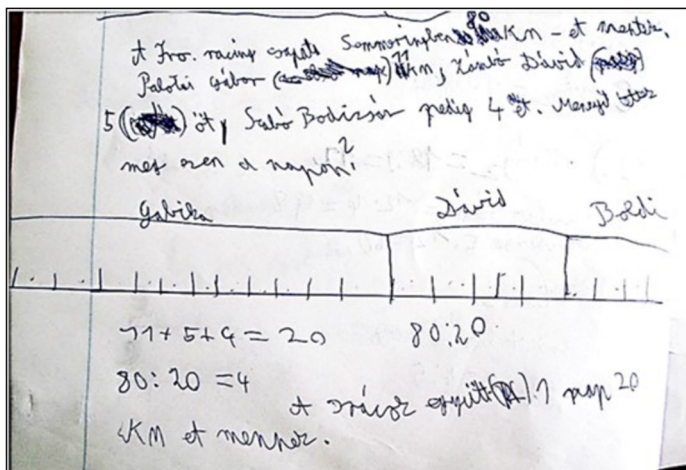 A Fro. racing csapat Semmeringben 80 Km-et mentek.
Palotai Gábor 11 km, Zámbó Dávid
5 öt, Szabó Bodizsár pedig 4 et. Menyit
ezen a napon?
Gabika Dávid Boldi
11+5+4=20 80:20
80:20=4
A srácok együtt 1 nap 20
KM et mennek.